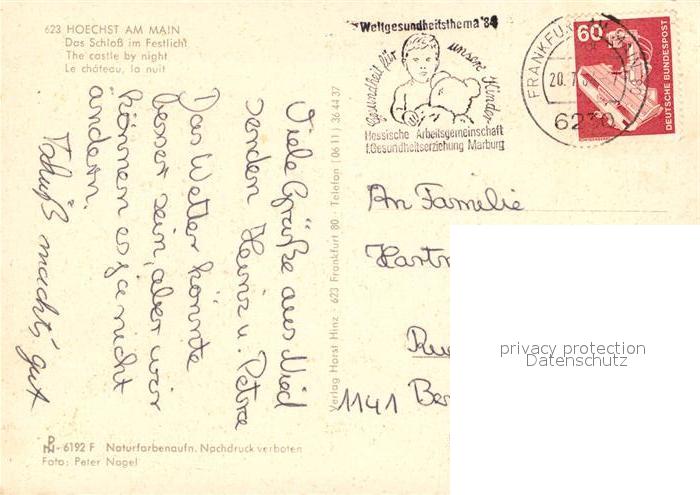 623 HOECHST AM MAIN
Das Schloß im Festlicht
The castle by night
Le château, la nuit
Viele Grüße aus Nied
senden Heinz u. Petra
Das Wetter könnte
besser sein, aber wir
können es ja nicht
ändern.
Tschüß macht's gut
PN - 6192 F Naturfarbenaufn. Nachdruck verboten
Foto: Peter Nagel
Verlag Horst Hinz · 623 Frankfurt 80 Telefon (06 11) 36 44 37
Weltgesundheitsthema '84
Gesundheit für unsere Kinder
Hessische Arbeitsgemeinschaft
f.Gesundheitserziehung Marburg
FRANKFURT AM MAIN
20.7.
6230
60
DEUTSCHE BUNDESPOST
An Familie
Hartm
Rue
1141 Ber
privacy protection
Datenschutz